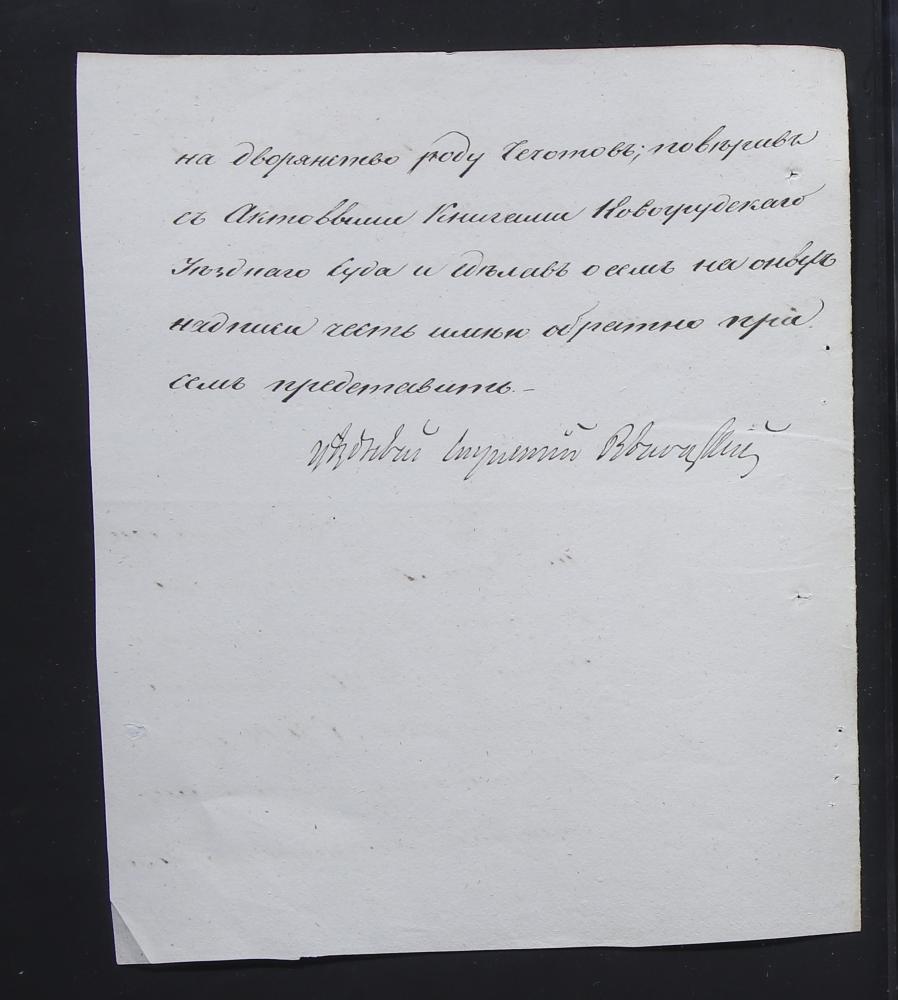 на дворянство роду Чечотовъ; повѣривъ
съ Актоввыми Книгами Новогрудскаго
Уѣзднаго Суда и сдѣлавъ о семъ на оныхъ
надписи честь имѣю обратно при
семъ представить.-
Уѣздный Стряпчій